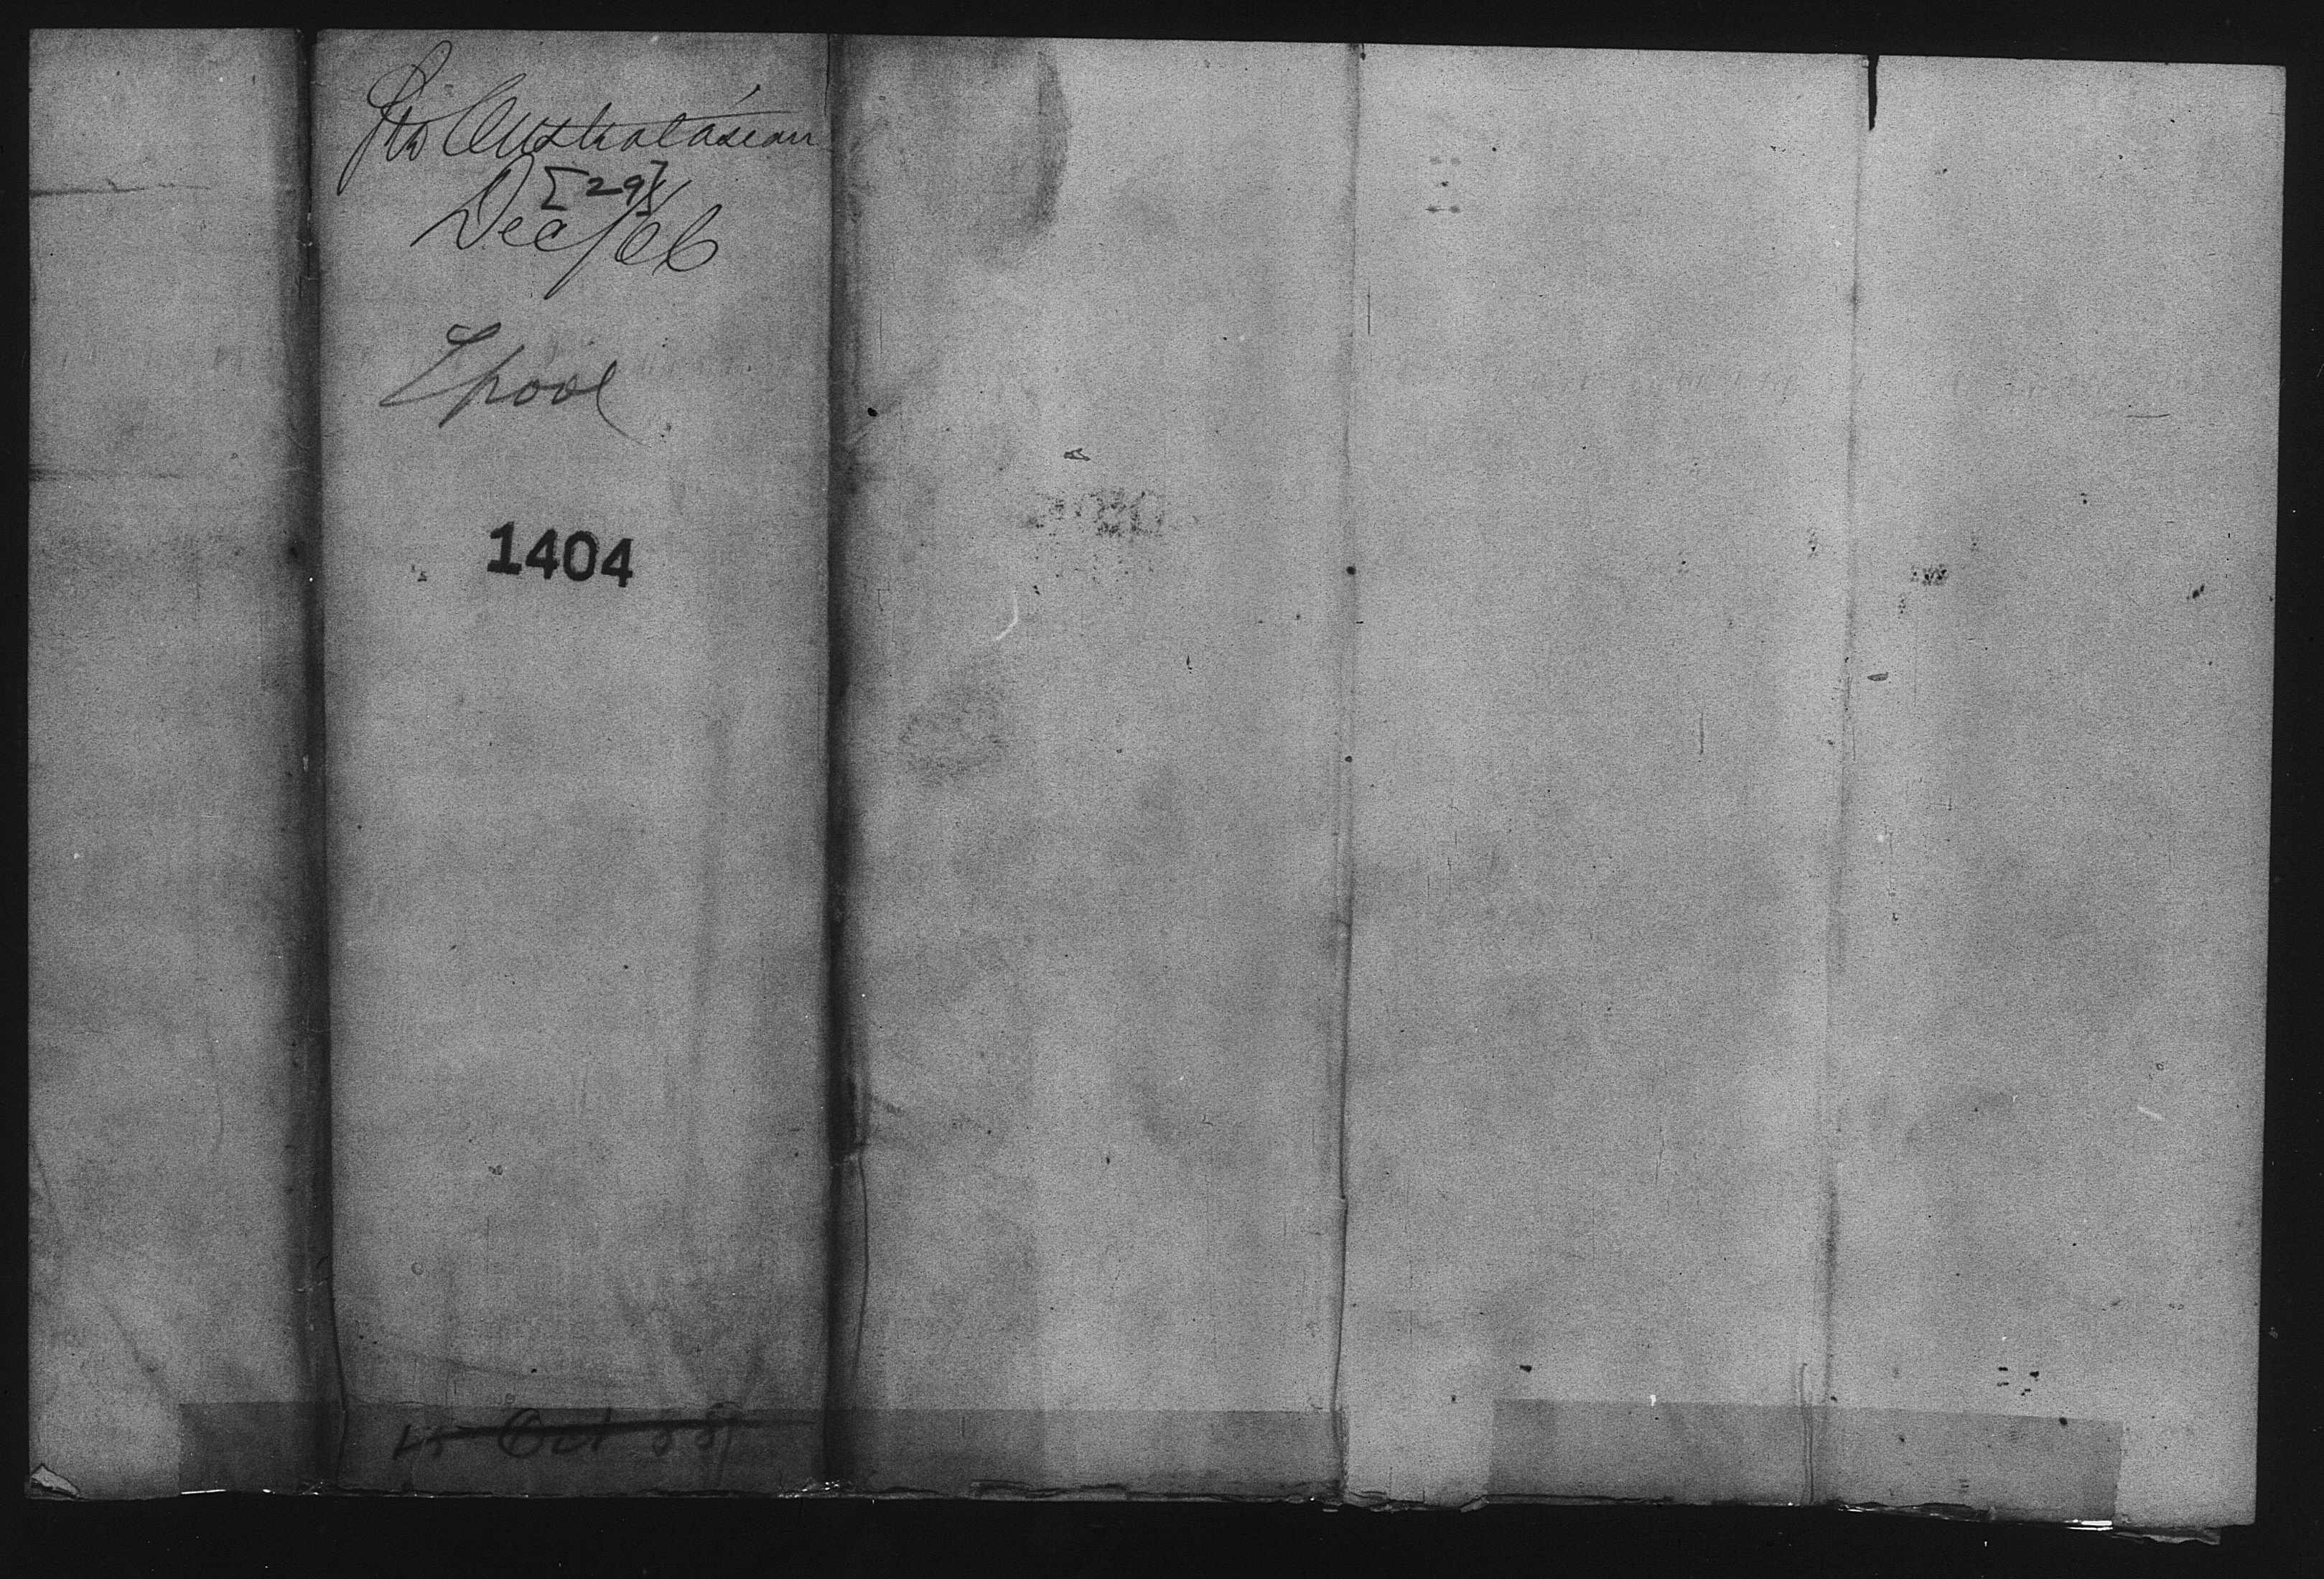 Str Australasian
[29]
Dec/66
Lpool
1404
25 Oct 88